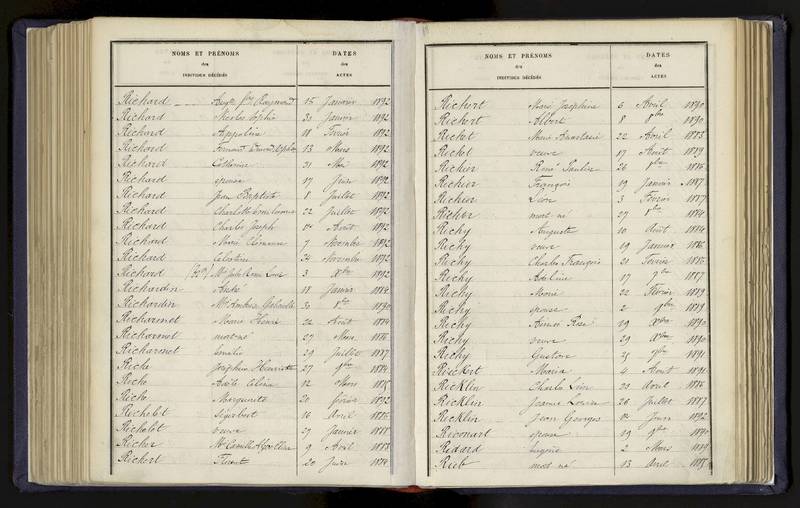 NOMS ET PRÉNOMS
des
INDIVIDUS DÉCÉDÉS
DATES
des
ACTES
Richard 15 Janvier 1892
Richard Sophie 30 Janvier 1892
Richard Appoline 18 Février 1892
Richard 13 Mars 1892
Richard Catherine 21 Mai 1892
Richard épouse 17 Juin 1892
Richard Jean Baptiste 8 Juillet 1892
Richard Charlotte 22 Juillet 1892
Richard Charles Joseph Août 1892
Richard Marie 7 Novembre 1892
Richard Célestine 24 Novembre 1892
Richard 3 Xbre 1892
Richardin André 18 Janvier 1884
Richardin 8bre 1890
Richarmet Henri 22 Août 1884
Richarmet mort-né 27 Mars 1886
Richarmet Emilie 29 Juillet 1887
Riche Joséphine Henriette 27 9bre 1884
Riche Adèle 12 Mars 1885
Riche Marguerite 20 Février 1892
Richelot Sigisbert 16 Avril 1886
Richelot veuve 29 Janvier 1888
Richer 9 Avril 1883
Richert 20 Juin 1874
NOMS ET PRÉNOMS
des
INDIVIDUS DÉCÉDÉS
DATES
des
ACTES
Richert Marie Joséphine 6 Avril 1890
Richert Albert 8 8bre 1890
Richet Marie Anastasie 22 Avril 1883
Richet veuve 17 Août 1889
Richier René Paulin 26 1886
Richier François 19 Janvier 1887
Richier Léon 3 Février 1887
Richier mort né 27 8bre 1884
Richy Auguste 10 Août 1884
Richy veuve 19 Janvier 1886
Richy Charles François 21 Février 1886
Richy Adeline 17 7bre 1887
Richy Marie 22 Février 1889
Richy épouse 2 9bre 1889
Richy 19 Xbre 1890
Richy veuve 29 Xbre 1890
Richy Gustave 25 9bre 1891
Rieckert Maria 4 Août 1891
Ricklin Charles Léon 20 Août 1886
Ricklin Jeanne Louise 26 Juillet 1887
Ricklin Jean Georges Juin 1892
Riconart épouse 19 9bre 1890
Ridard Eugène 2 Mars 1889
Rieb mort né 13 Avril 1885